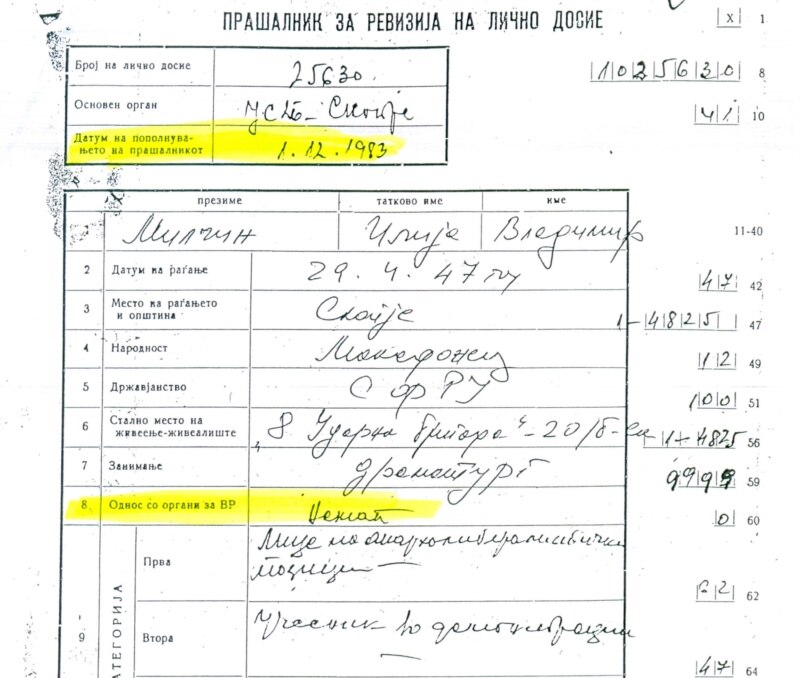 ПРАШАЛНИК ЗА РЕВИЗИЈА НА ЛИЧНО ДОСИЕ
|X| 1
Број на лично досие 25630. |1|0|2|5|6|3|0| 8
Основен орган УСДБ - Скопје |4|1| 10
Датум на пополнува-
њето на прашалникот 1.12.1983
презиме татково име име
1 Милчин Илија Владимир 11-40
2 Датум на раѓање 29. 4. 47 |4|7| 42
3 Место на раѓањето
и општина Скопје 1-|4|8|2|5| | 47
4 Народност Македонец |1|2| 49
5 Државјанство СФРЈ |1|0|0| 51
6 Стално место на
живеење-живеалиште „8 Ударна бригада“ - 20/б- 1-4825 56
7 Занимање драматург 9999 59
8 Однос со органи за ВР Немат |0| 60
9 КАТЕГОРИЈА
Прва Лице на анархолибералистички
позиции |2| 62
Втора Учесник во демонстрации
|4|7| 64